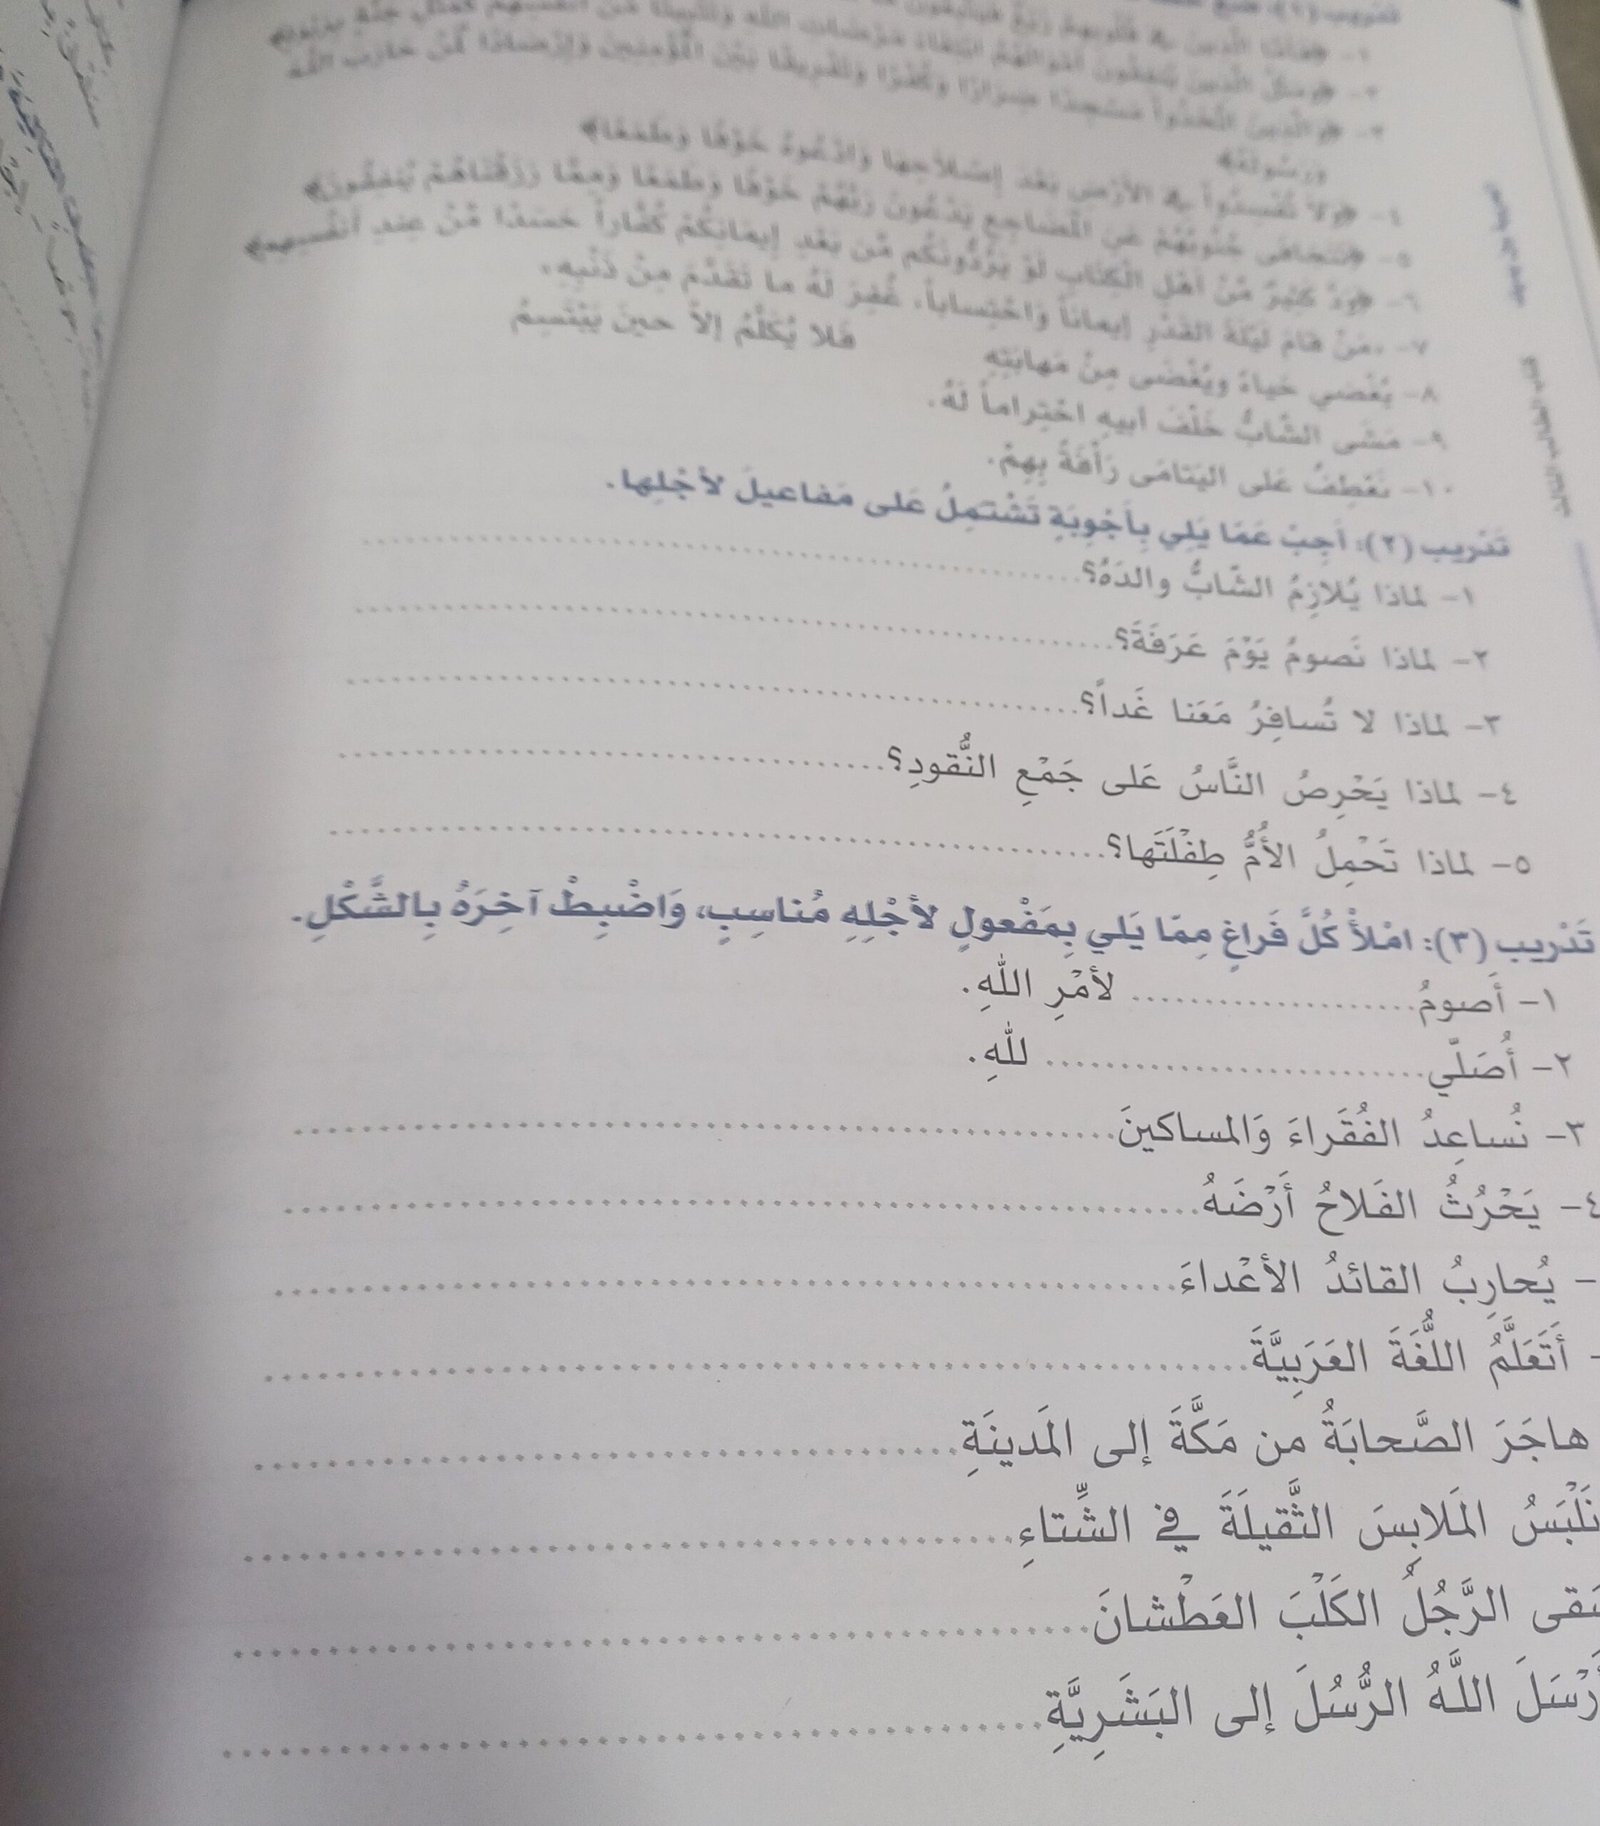 ١- ﴿فَأَمَّا الَّذِينَ فِي قُلُوبِهِمْ زَيْغٌ فَيَتَّبِعُونَ
٢- ﴿وَمَثَلُ الَّذِينَ يُنفِقُونَ أَمْوَالَهُمُ ابْتِغَاءَ مَرْضَاتِ اللَّهِ وَتَثْبِيتًا مِّنْ أَنفُسِهِمْ كَمَثَلِ جَنَّةٍ بِرَبْوَةٍ﴾
٣- ﴿وَالَّذِينَ اتَّخَذُواْ مَسْجِدًا ضِرَارًا وَكُفْرًا وَتَفْرِيقًا بَيْنَ الْمُؤْمِنِينَ وَإِرْصَادًا لِّمَنْ حَارَبَ اللَّهَ
وَرَسُولَهُ﴾
٤- ﴿وَلاَ تُفْسِدُواْ فِي الأَرْضِ بَعْدَ إِصْلاَحِهَا وَادْعُوهُ خَوْفًا وَطَمَعًا﴾
٥- ﴿تَتَجَافَى جُنُوبُهُمْ عَنِ الْمَضَاجِعِ يَدْعُونَ رَبَّهُمْ خَوْفًا وَطَمَعًا وَمِمَّا رَزَقْنَاهُمْ يُنفِقُونَ﴾
٦- ﴿وَدَّ كَثِيرٌ مِّنْ أَهْلِ الْكِتَابِ لَوْ يَرُدُّونَكُم مِّن بَعْدِ إِيمَانِكُمْ كُفَّاراً حَسَدًا مِّنْ عِندِ أَنْفُسِهِم﴾
٧- «مَنْ قامَ لَيْلَةَ القَدْرِ إيماناً وَاحْتِساباً، غُفِرَ لَهُ ما تَقَدَّمَ مِنْ ذَنْبِهِ»
٨- يُغْضي حَياءً ويُغْضَى مِنْ مَهابَتِهِ فَلا يُكَلَّمُ إلاّ حينَ يَبْتَسِمُ
٩- مَشَى الشّابُّ خَلْفَ أبيهِ احْتِراماً لَهُ.
١٠- نَعْطِفُ عَلى اليَتامَى رَأْفَةً بِهِمْ.
تَدْريب (٢): أَجِبْ عَمّا يَلي بِأَجْوِبَةٍ تَشْتَمِلُ عَلى مَفاعيلَ لأَجْلِها.
١- لماذا يُلازِمُ الشّابُّ والدَهُ؟
٢- لماذا نَصومُ يَوْمَ عَرَفَةَ؟
٣- لماذا لا تُسافِرُ مَعَنا غَداً؟
٤- لماذا يَحْرِصُ النَّاسُ عَلى جَمْعِ النُّقودِ؟
٥- لماذا تَحْمِلُ الأُمُّ طِفْلَتَها؟
تَدْريب (٣): امْلأْ كُلَّ فَراغٍ مِمّا يَلي بِمَفْعولٍ لأَجْلِهِ مُناسِبٍ، وَاضْبِطْ آخِرَهُ بِالشَّكْلِ.
١- أَصومُ.................... لأمْرِ اللهِ.
٢- أُصَلّي.......................... للهِ.
٣- نُساعِدُ الفُقَراءَ وَالمساكينَ
٤- يَحْرُثُ الفَلاحُ أَرْضَهُ
- يُحارِبُ القائدُ الأعْداءَ
- أَتَعَلَّمُ اللُّغَةَ العَرَبِيَّةَ
هاجَرَ الصَّحابَةُ من مَكَّةَ إلى المَدينَةِ
نَلْبَسُ المَلابِسَ الثَّقيلَةَ في الشِّتاءِ
سَقى الرَّجُلُ الكَلْبَ العَطْشانَ
أَرْسَلَ اللَّهُ الرُّسُلَ إلى البَشَرِيَّةِ